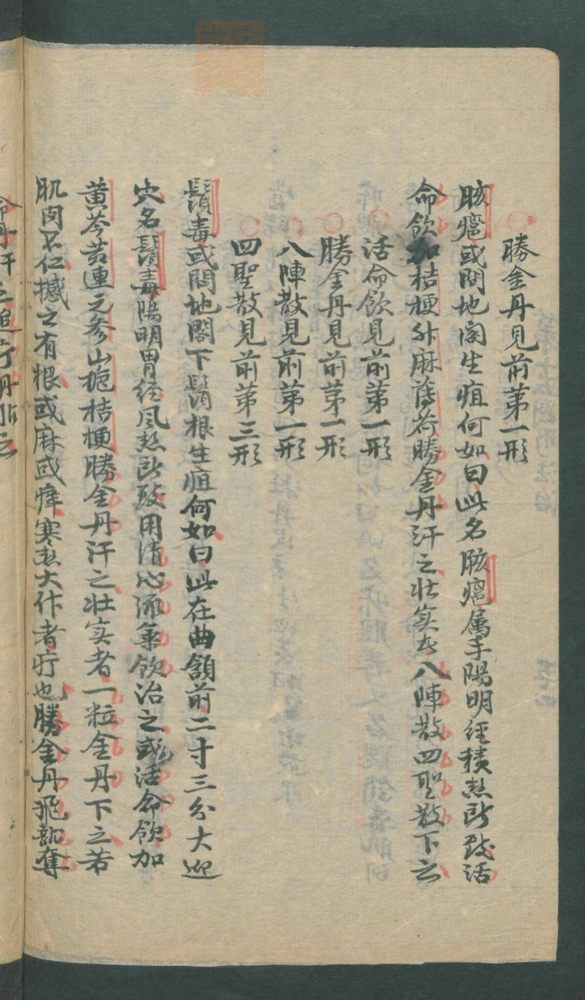 勝金丹見前第一形
骸癰或問地閣生疽何如曰此名骸癰属手陽明経積热所致活
命飲加桔梗升麻薄荷勝金丹汗之壮实者八陣散四聖散下之
活命飲見前第一形
勝金丹見前第一形
八陣散見前第一形
四聖散見前第三形
鬚毒或問地閣下鬚根生疽何如曰此在曲頷前一寸三分大迎
穴名鬚毒陽明胃経风热所致用清心流氣飲治之或活命飲加
黄芩黄連元参山栀桔梗勝金丹汗之壮实者一粒金丹下之若
肌肉不仁撼之有根或麻或痒寒热大作者疔也勝金丹飛龍奪